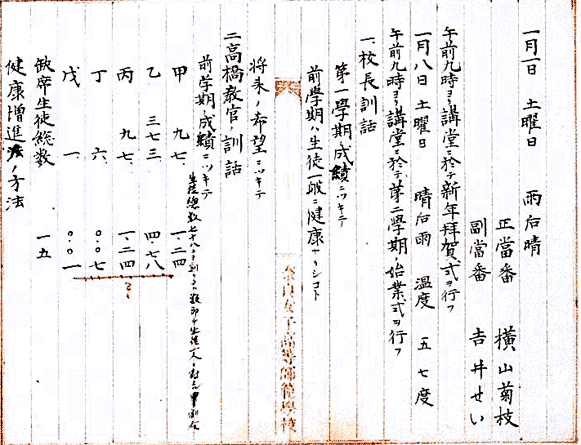 一月一日　土曜日　雨后晴
正當番　横山菊枝
副當番　吉井せい
午前九時ヨリ講堂ニ於テ新年拜賀式ヲ行フ
一月八日　土曜日　晴后雨　温度　五七度
午前九時ヨリ講堂ニ於テ第二學期始業式ヲ行フ
一、校長訓話
第一學期成績ニツキテ
前學期ハ生徒一般ニ健康ナリシコト
将来ノ希望ニツキテ
二高橋教官ノ訓話
前学期成績ニツキテ
生徒總数
甲　九七、　一・二四
乙　三七三、　四・七八
丙　九七、　一・二四
丁　六、　〇・〇七
戊　一、　〇・〇一
缺席生徒総数　一五
健康増進ノ方法
奈良女子高等師範學校